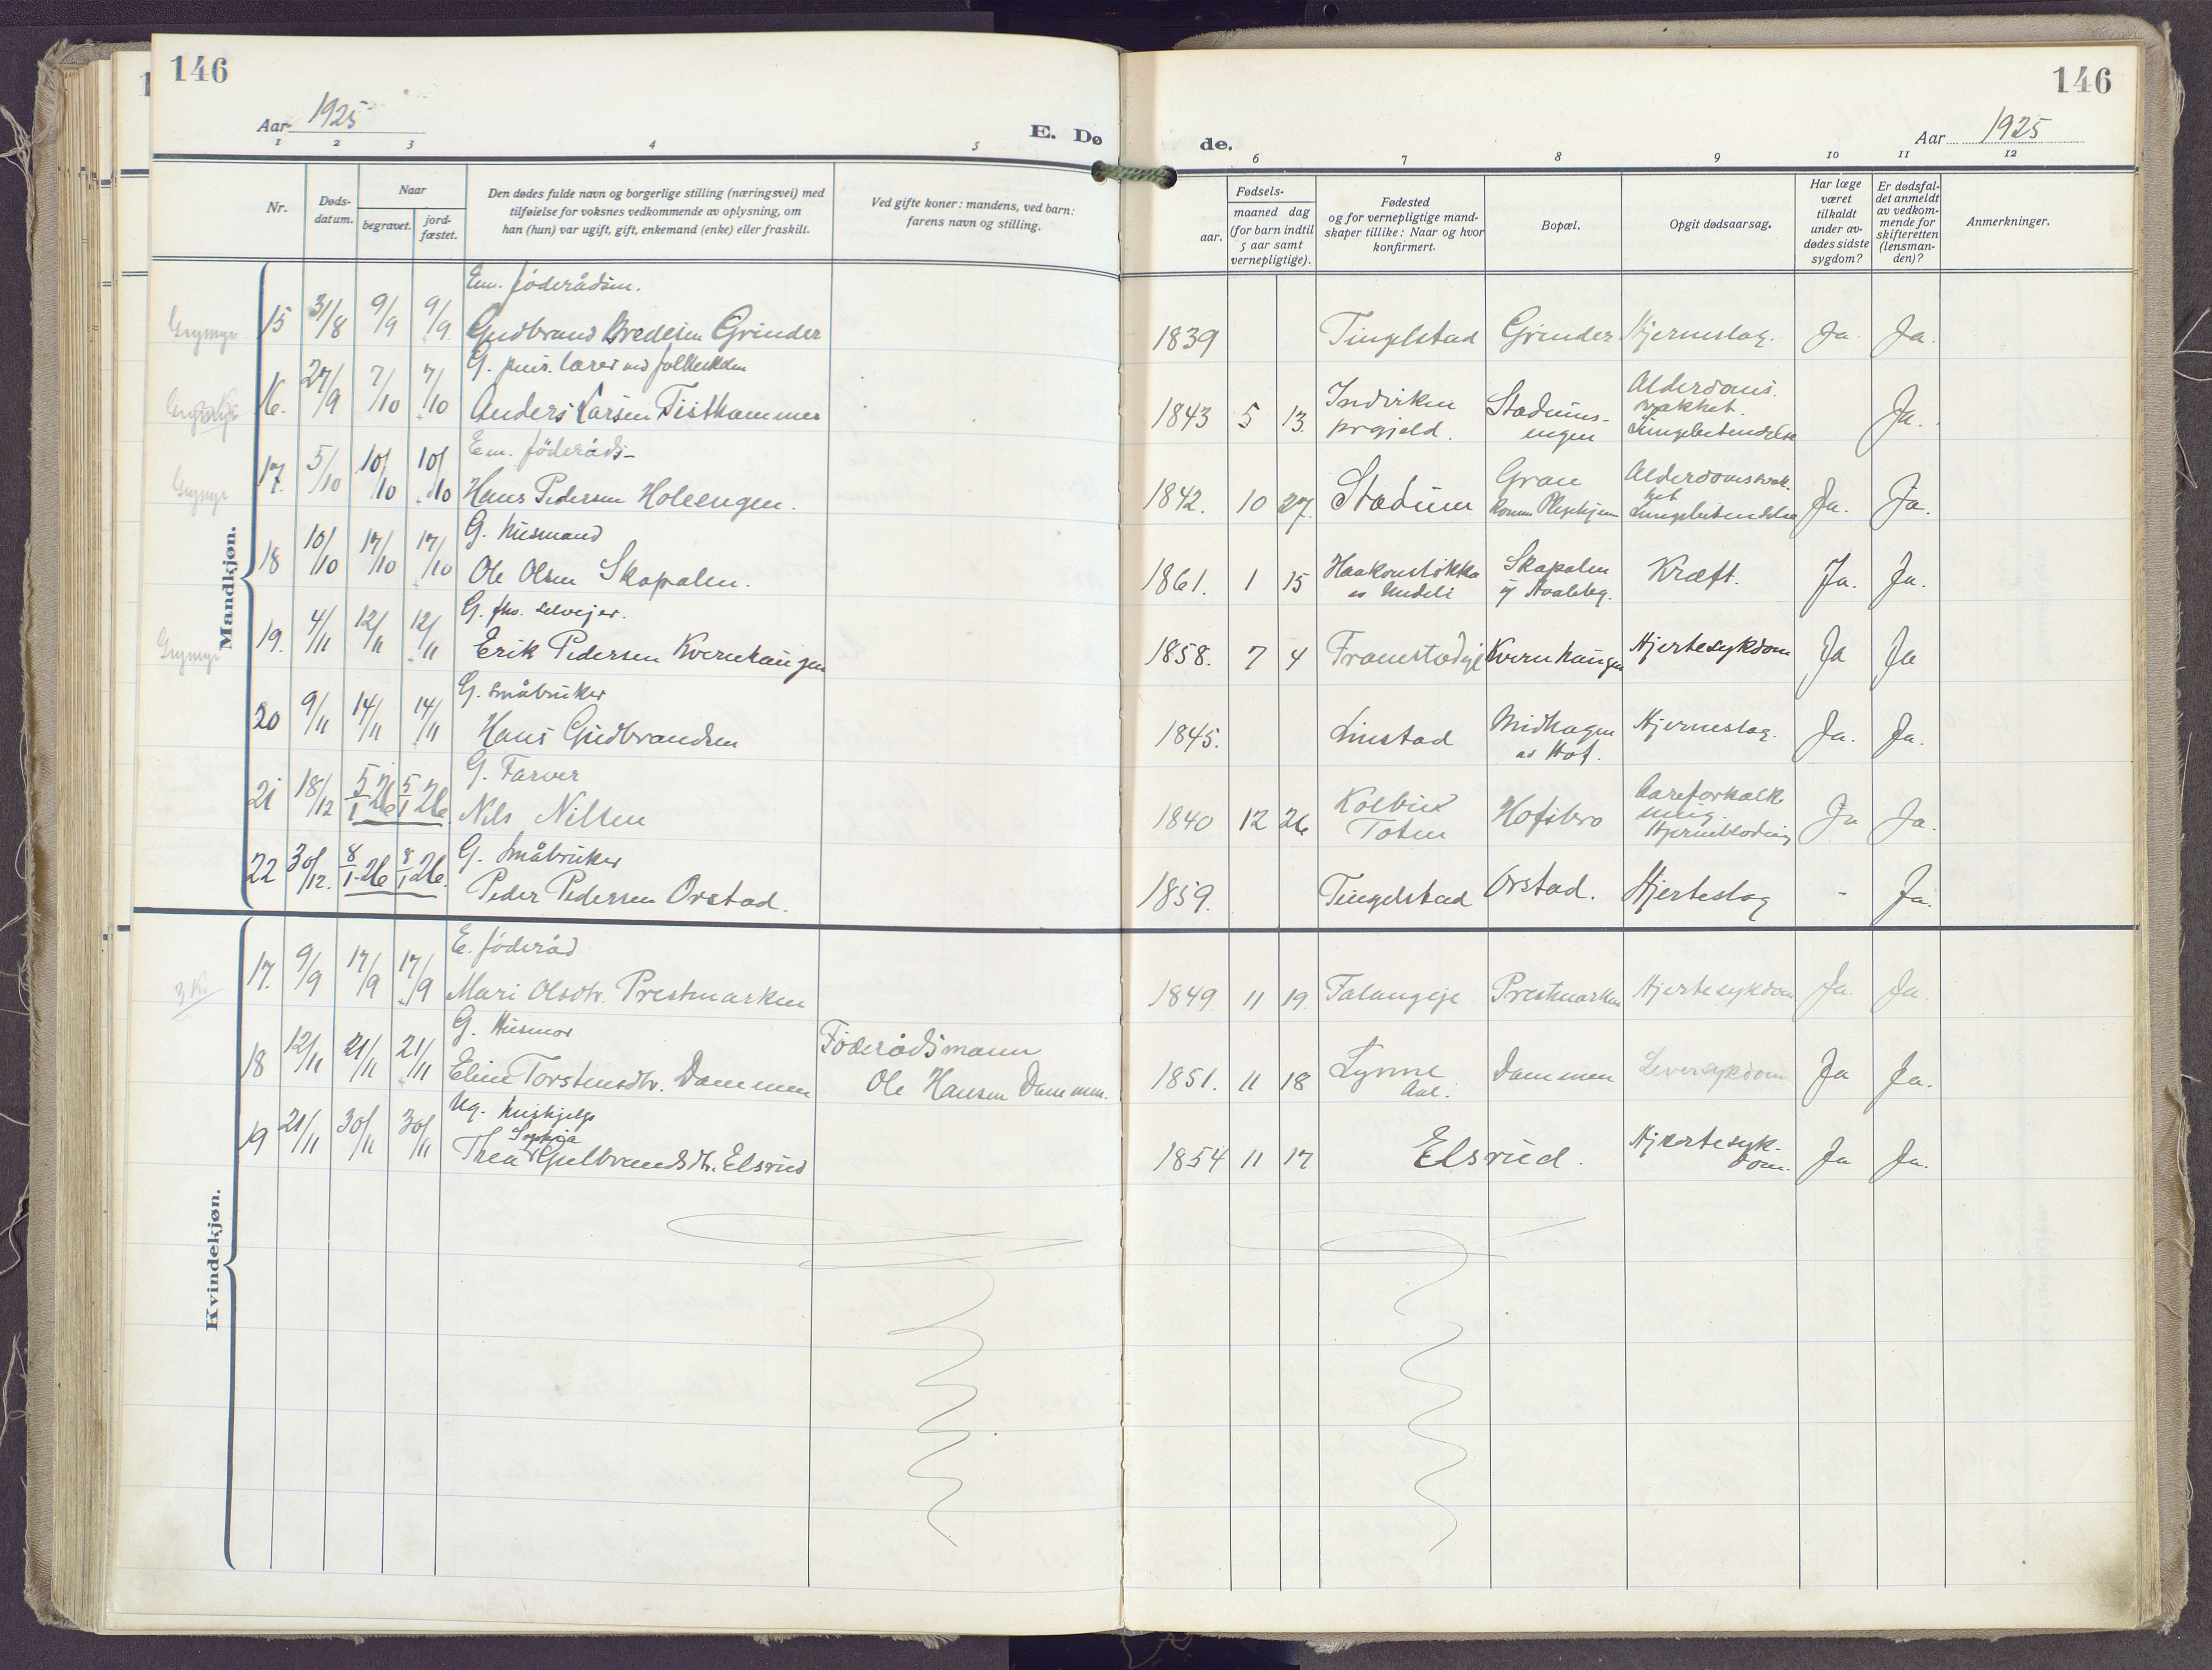 146
Aar 1925
E. Dø
1 2 3 4 5
Nr.
Døds-
datum.
Naar
begravet.
jord-
fæstet.
Den dødes fulde navn og borgerlige stilling (næringsvei) med
tilføielse for voksnes vedkommende av oplysning, om
han (hun) var ugift, gift, enkemand (enke) eller fraskilt.
Ved gifte koner: mandens, ved barn:
farens navn og stilling.
Mandkjøn.
Em. föderådsm.
15 31/8 9/9 9/9 Gudbrand Bredesen Grinder
16. 27/9 7/10 7/10 Anders Larsen Tisthammer
Em. föderåds-
17. 5/10 10/10 10/10 Hans Pedersen Holeengen.
G. husmand
18 10/10 17/10 17/10 Ole Olsen Skapalen.
G. fhv. selveier.
19. 4/11 12/11 12/11 Erik Pedersen Kvernhaugen
G. småbruker
20 9/11 14/11 14/11 Hans Gudbrandsen
G. Farver
21 18/12 5/1 26 5/1 26 Nils Nilsen
G. småbruker
22 30/12. 8/1-26 8/1 26. Peder Pedersen Orstad.
Kvindekjøn.
E. föderåd
17. 9/9 17/9 17/9 Mari Olsdtr. Prestmarken
G. Husmor
Föderådsmann
18 12/11 21/11 21/11 Eline Torstensdtr. Dammen
Ole Hansen Dammen.
Ug. hushjelp
19 21/11 30/11 30/11 Thea Gulbrandsdtr. Elsrud
146
de.
Aar 1925
6 7 8 9 10 11 12
Fødsels-
aar.
maaned dag
(for barn indtil
5 aar samt
vernepligtige).
Fødested
og for vernepligtige mand-
skaper tillike: Naar og hvor
konfirmert.
Bopæl.
Opgit dødsaarsag.
Har læge
været
tilkaldt
under av-
dødes sidste
sygdom?
Er dødsfal-
det anmeldt
av vedkom-
mende for
skifteretten
(lensman-
den)?
Anmerkninger.
1839 Tingelstad Grinder Hjerneslag. Ja. Ja.
1843 5 13. Indviken prgjeld. Stadums-engen Alderdoms. svakhet. Lungebetendelse Ja.
1842. 10 27. Stadum Gran Komm Pleiehjem Alderdomssvak. het Lungebetendelse Ja. Ja.
1861. 1 15 Skapalen Kræft. Ja. Ja.
1858. 7 4 Framstadeje Kvernhaugen Hjertesykdom Ja Ja
1845. Linstad Midhagen av Hof. Hjerneslag. Ja. Ja.
1840 12 26 Kolbu Toten Hofsbro Aareforkalk ning. Hjerneblødning Ja Ja.
1859. Tingelstad Orstad. Hjerteslag - Ja.
1849 11 19. Falangeje Prestmarken Hjertesykdom Ja. Ja
1851. 11 18 Lynne Aal. Dammen Leversykdom Ja Ja.
1854 11 17 Elsrud. Hjertesyk-dom. Ja Ja.